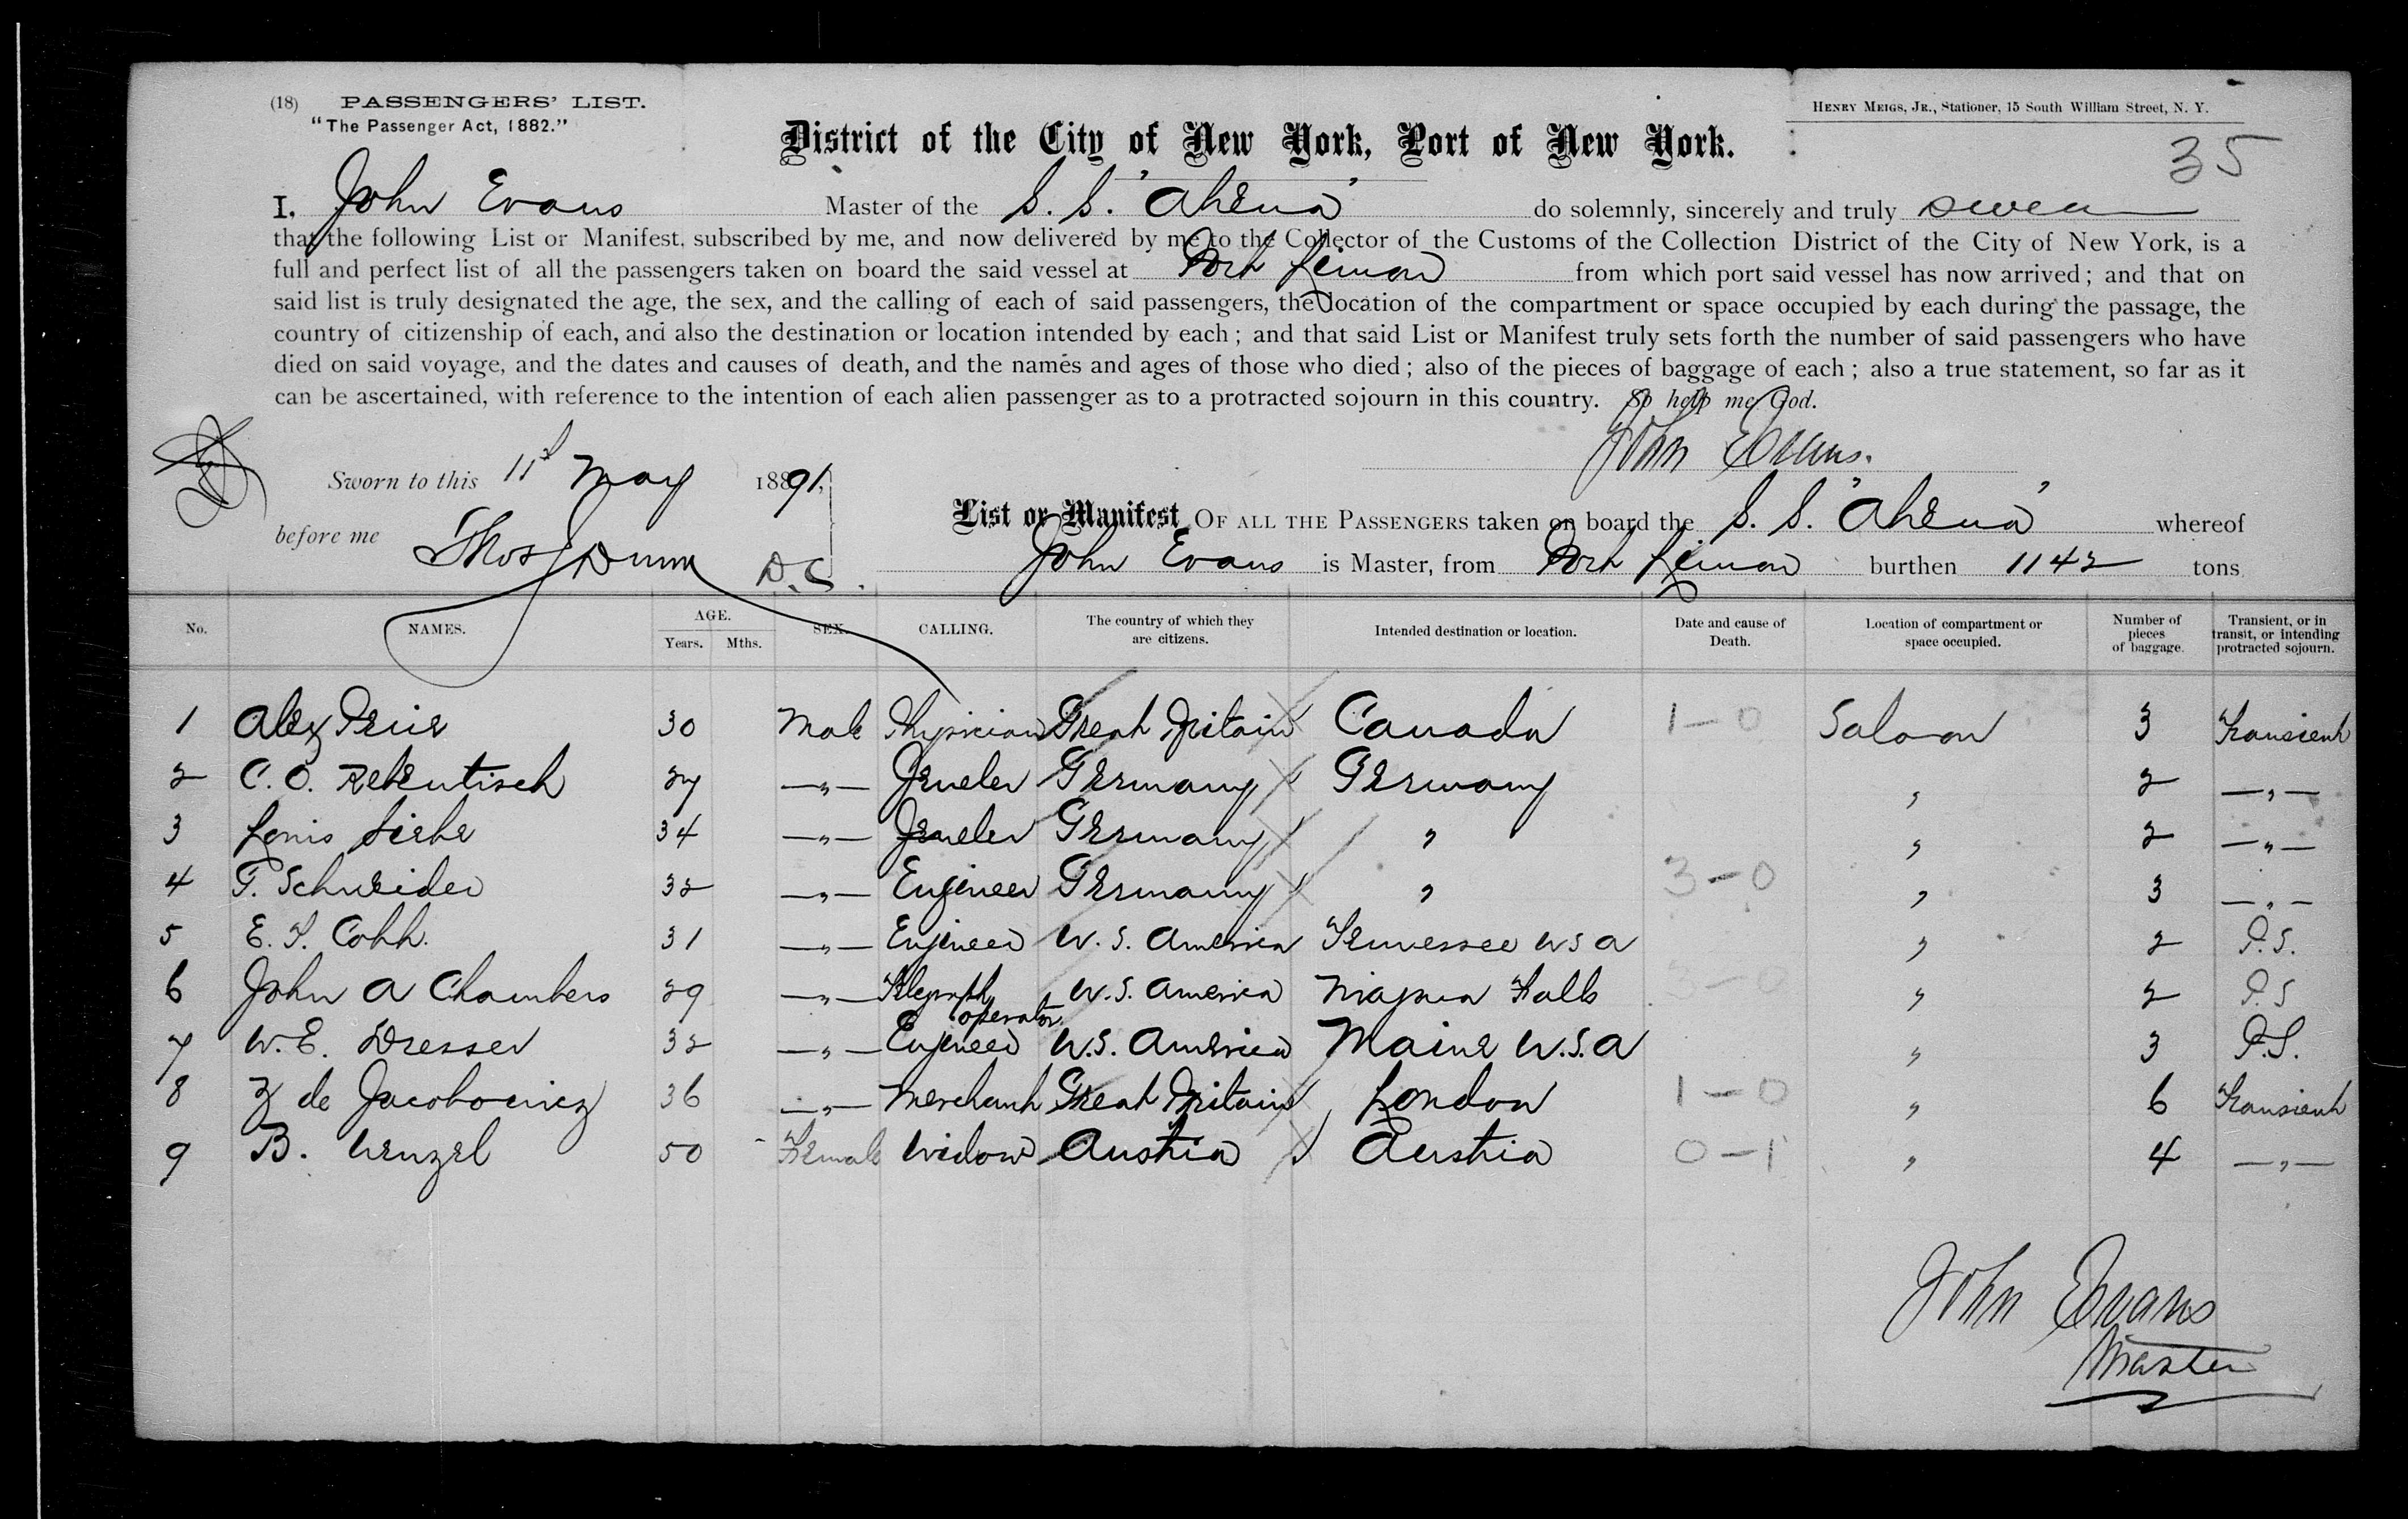 (18) PASSENGERS' LIST.
"The Passenger Act, 1882."
HENRY MEIGS, JR., Stationer, 15 South William Street, N. Y.
35
District of the City of New York, Port of New York.
I, John Evans Master of the S. S. "Athena" do solemnly, sincerely and truly swear
that the following List or Manifest, subscribed by me, and now delivered by me to the Collector of the Customs of the Collection District of the City of New York, is a
full and perfect list of all the passengers taken on board the said vessel at Port Limon from which port said vessel has now arrived; and that on
said list is truly designated the age, the sex, and the calling of each of said passengers, the location of the compartment or space occupied by each during the passage, the
country of citizenship of each, and also the destination or location intended by each; and that said List or Manifest truly sets forth the number of said passengers who have
died on said voyage, and the dates and causes of death, and the names and ages of those who died; also of the pieces of baggage of each; also a true statement, so far as it
can be ascertained, with reference to the intention of each alien passenger as to a protracted sojourn in this country. So help me God.
John Evans.
Sworn to this 11th May 1891,
before me Thos Dunn D.C.
List or Manifest OF ALL THE PASSENGERS taken on board the S. S. "Athena" whereof
John Evans is Master, from Port Limon burthen 1142 tons
No. NAMES. AGE. Years. Mths. SEX. CALLING. The country of which they are citizens. Intended destination or location. Date and cause of Death. Location of compartment or space occupied. Number of pieces of baggage. Transient, or in transit, or intending protracted sojourn.
1 Alex 30 Male Physician Great Britain Canada 1-0 Saloon 3 Transient
2 C. O. Rekentisch 27 —"— Jeweler Germany Germany " 2 —"—
3 Louis Siebe 34 —"— Jeweler Germany " " 2 —"—
4 F. Schneider 32 —"— Engineer Germany " 3-0 " 3 —"—
5 E. T. Cobb. 31 —"— Engineer U. S. America Tennessee U S A " 2 P.S.
6 John A Chambers 29 —"— Telegraph operator. U. S. America Niagara Falls " 2 P.S
7 W. E. Dresser 32 —"— Engineer U.S. America Maine U.S.A " 3 P.S.
8 Z de Jacobowicz 36 —"— Merchant Great Britain London 1-0 " 6 Transient
9 B. Wenzel 50 Female Widow Austria Austria 0-1 " 4 —"—
John Evans
Master